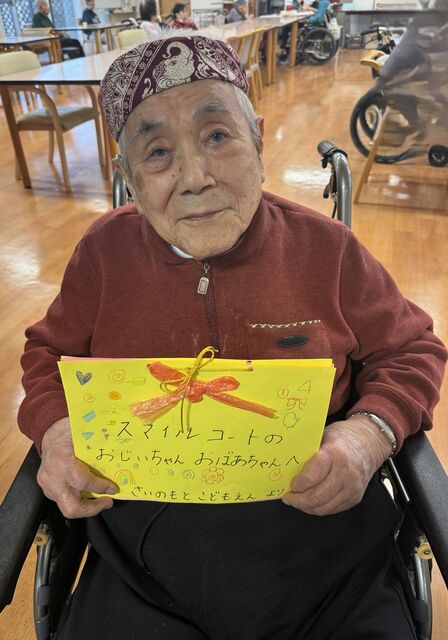 スマイルコートの
おじいちゃん おばあちゃんへ
さいのもと こどもえん より